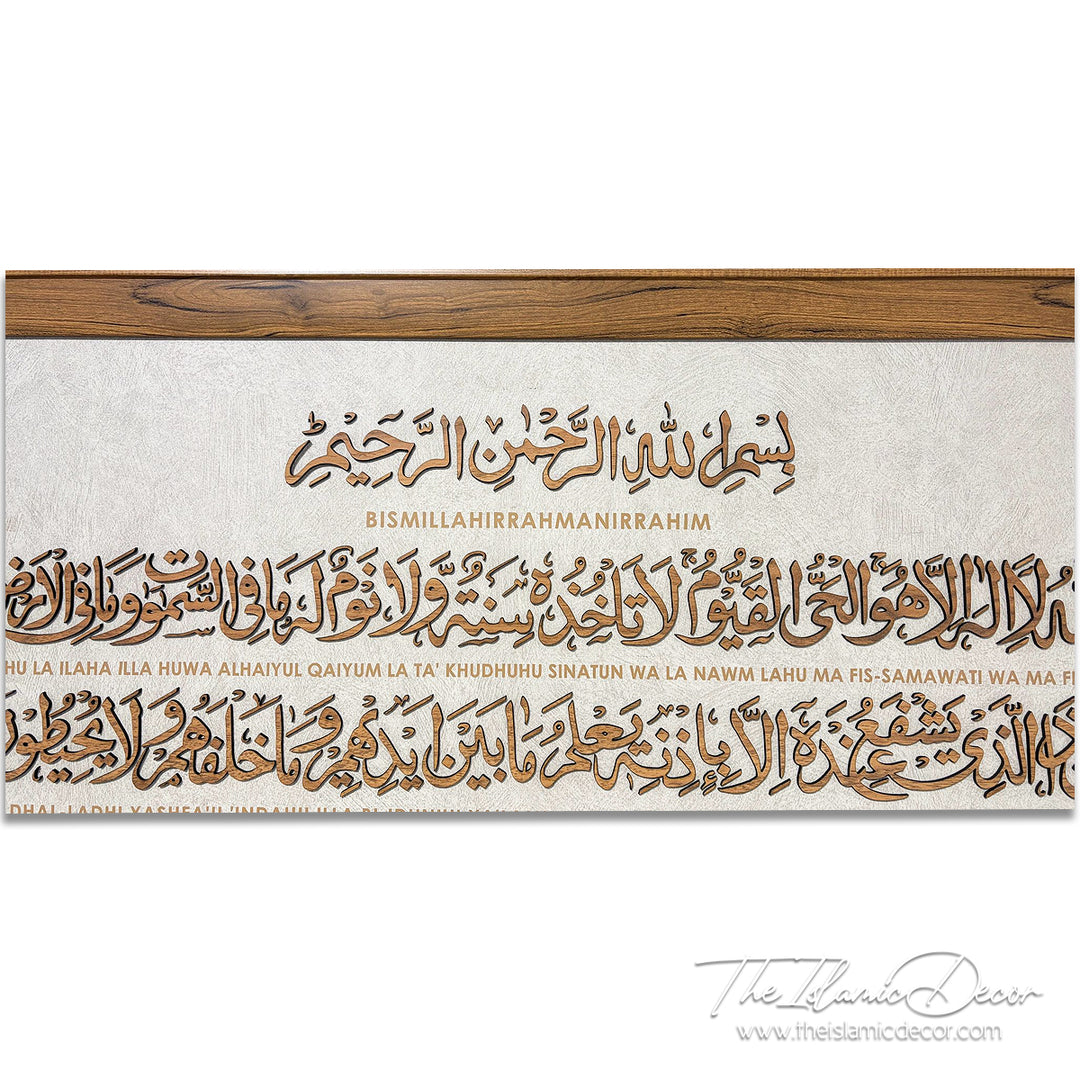 بِسْمِ اللهِ الرَّحْمٰنِ الرَّحِيْمِ
BISMILLAHIRRAHMANIRRAHIM
لَا اِلٰهَ اِلَّا هُوَ الْحَىُّ الْقَيُّوْمُ لَا تَاْخُذُهٗ سِنَةٌ وَّلَا نَوْمٌ لَهٗ مَا فِى السَّمٰوٰتِ وَمَا فِى الْاَرْضِ
HU LA ILAHA ILLA HUWA ALHAIYUL QAIYUM LA TA' KHUDHUHU SINATUN WA LA NAWM LAHU MA FIS-SAMAWATI WA MA F
الَّذِىْ يَشْفَعُ عِنْدَهٗ اِلَّا بِاِذْنِهٖ يَعْلَمُ مَا بَيْنَ اَيْدِيْهِمْ وَمَا خَلْفَهُمْ وَلَا يُحِيْطُوْ
The Islamic Decor
www.theislamicdecor.com